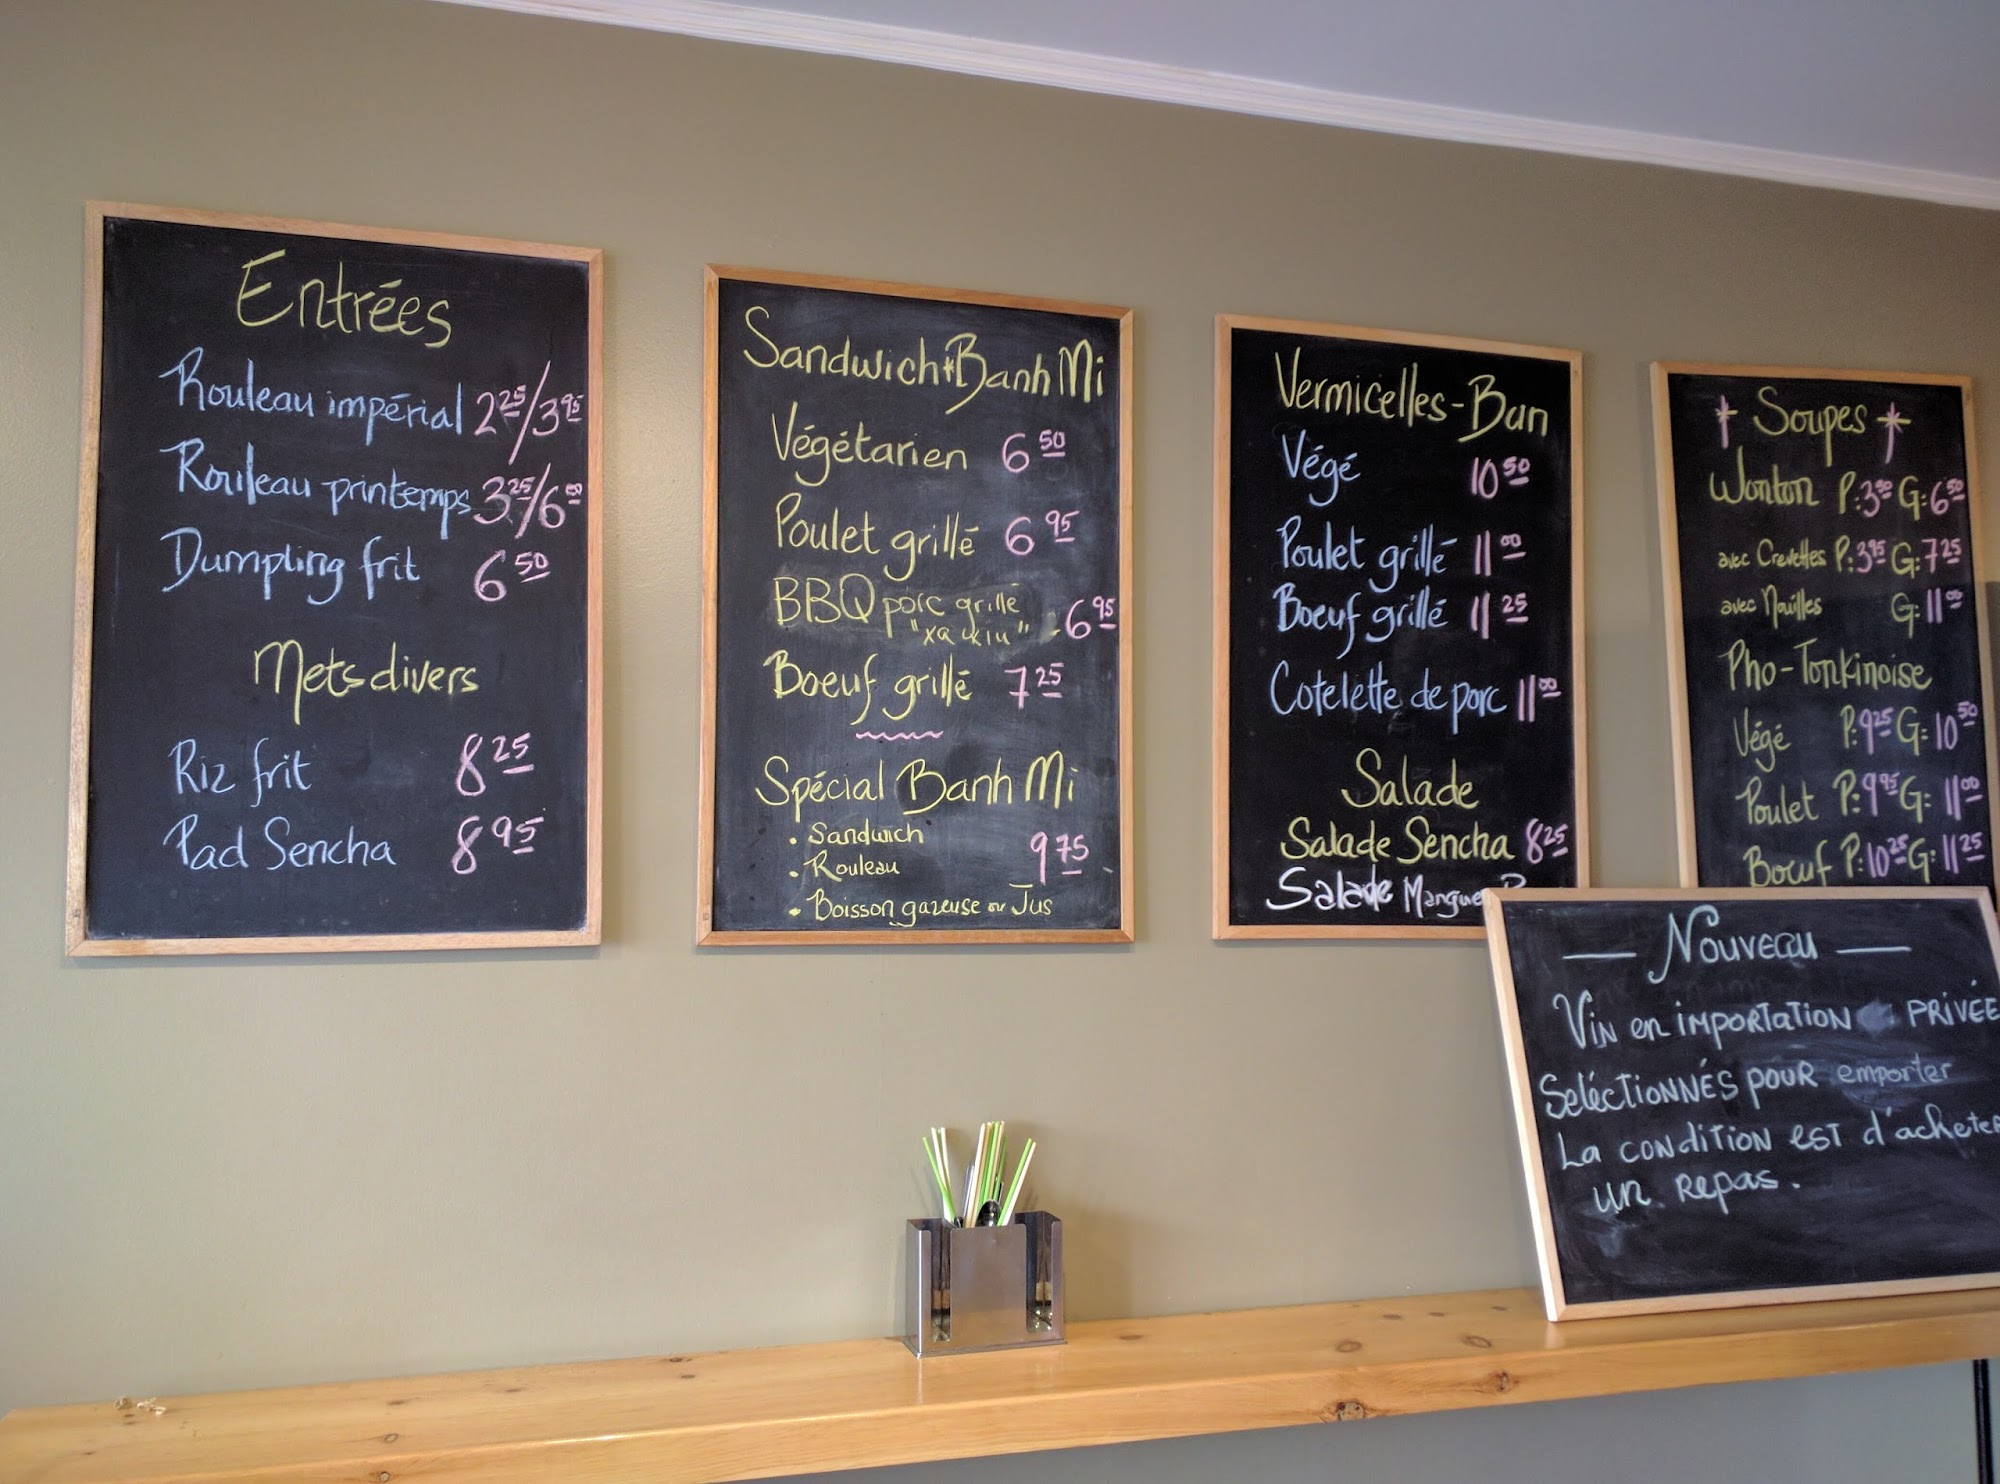 Entrées
Rouleau impérial 2.25/3.95
Rouleau printemps 3.25/6.00
Dumpling frit 6.50
Mets divers
Riz frit 8.25
Pad Sencha 8.95
Sandwich*Banh Mi
Végétarien 6.50
Poulet grillé 6.95
BBQ porc grillé 6.95
"xa xiu"
Boeuf grillé 7.25
Spécial Banh Mi
• Sandwich
• Rouleau 9.75
• Boisson gazeuse ou Jus
Vermicelles-Bun
Végé 10.50
Poulet grillé 11.00
Boeuf grillé 11.25
Cotelette de porc 11.00
Salade
Salade Sencha 8.25
Salade Mangue
Soupes
Wonton P:3.50 G:6.50
avec Crevettes P:3.95 G:7.25
avec Nouilles G:11.00
Pho-Tonkinoise
Végé P:9.25 G:10.50
Poulet P:9.95 G:11.00
Boeuf P:10.25 G:11.25
— Nouveau —
Vin en importation privée
Seléctionnés pour emporter
La condition est d'acheter
un repas.